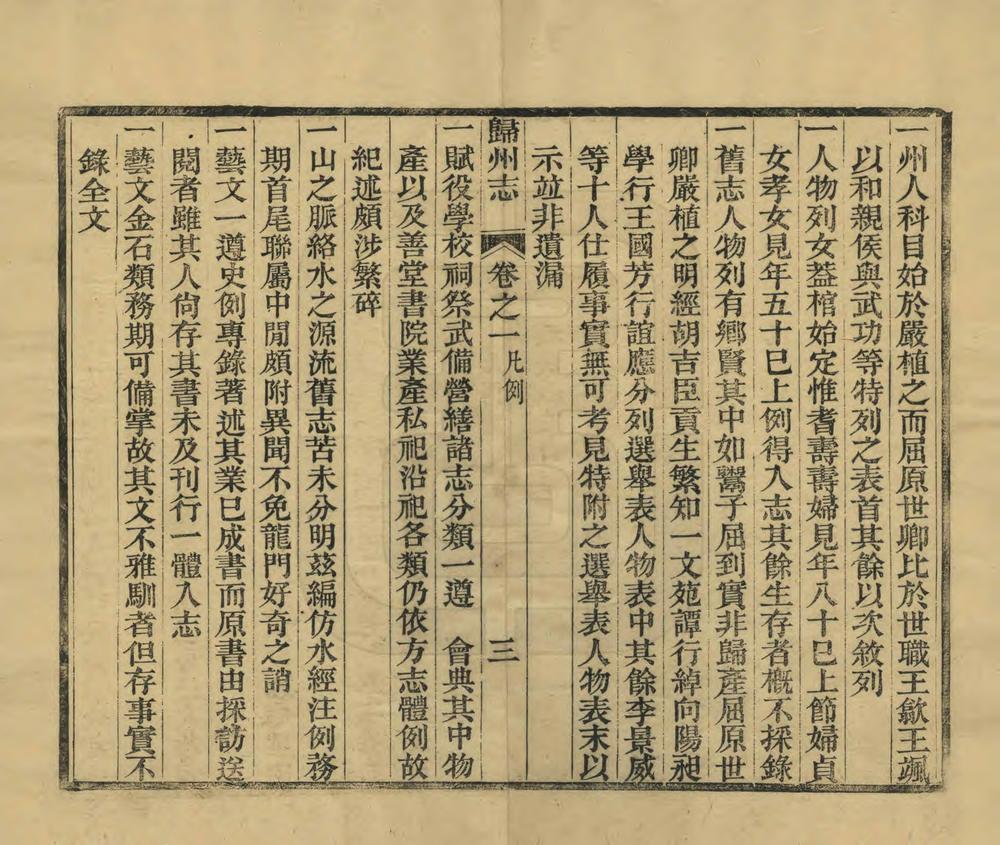 一州人科目始於嚴植之而屈原世卿比於世職王歙王颯
以和親侯與武功等特列之表首其餘以次敘列
一人物列女蓋棺始定惟耆壽壽婦見年八十巳上節婦貞
女孝女見年五十巳上例得入志其餘生存者槪不採錄
一舊志人物列有鄉賢其中如鬻子屈到實非歸產屈原世
卿嚴植之明經胡吉臣貢生繁知一文苑譚行綽向陽昶
學行王國芳行誼應分列選舉表人物表中其餘李景威
等十人仕履事實無可考見特附之選舉表人物表末以
示並非遺漏
歸州志 卷之一 凡例 三
一賦役學校祠祭武備營繕諸志分類一遵 會典其中物
產以及善堂書院業產私祀沿祀各類仍依方志體例故
紀述頗涉繁碎
一山之脈絡水之源流舊志苦未分明茲編仿水經注例務
期首尾聯屬中閒頗附異聞不免龍門好奇之誚
一藝文一遵史例專錄著述其業巳成書而原書由採訪送
閱者雖其人尙存其書未及刊行一體入志
一藝文金石類務期可備掌故其文不雅馴者但存事實不
錄全文